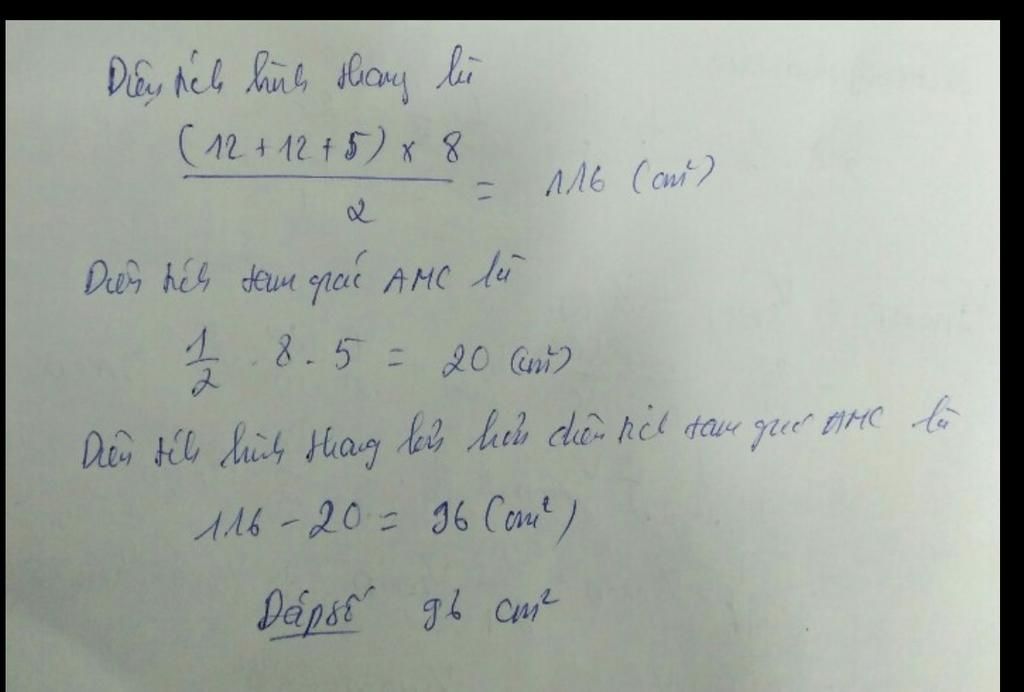 Diện tích hình thang là
(12 + 12 + 5) x 8
2
= 116 (cm²)
Diện tích tam giác AMC là
1/2 . 8 . 5 = 20 (cm²)
Diện tích hình thang lớn hơn diện tích tam giác AMC là
116 - 20 = 96 (cm²)
Đáp số 96 cm²